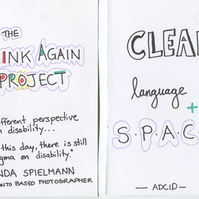 THE
INK AGAIN
PROJECT
fferent perspective
n disability...
this day, there is still
gma on disability."
NDA SPIELMANN
NTO BASED PHOTOGRAPHER
CLEA
language
+
S.P.A.C
— ADCID —